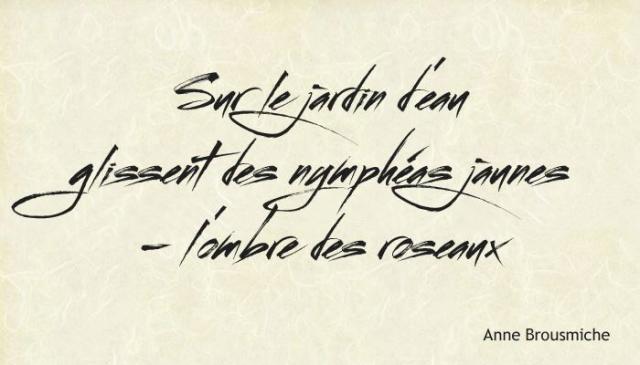 Sur le jardin d'eau
glissent des nymphéas jaunes
- l'ombre des roseaux
Anne Brousmiche